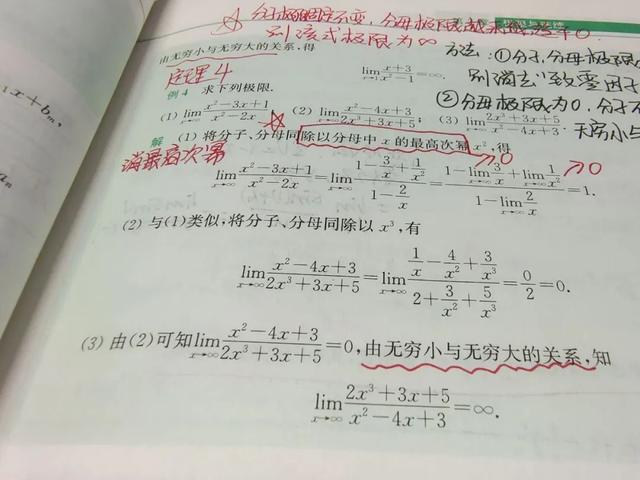 分母极限
别该式极限为∞
方法:①分子,分母极限
由无穷小与无穷大的关系,得
lim x→1 (x+3)/(x²−1)=∞.
别消去"致零因子
定理4
②分母极限为0,分子
例4 求下列极限.
(1) lim x→∞ (x²−3x+1)/(x²−2x) (2) lim x→∞ (x²−4x+3)/(2x³+3x+5); (3) lim x→∞ (2x³+3x+5)/(x²−4x+3).
无穷小与
解 (1) 将分子、分母同除以分母中 x 的最高次幂 x²,得
消最高次幂
→0 →0
lim x→∞ (x²−3x+1)/(x²−2x) = lim x→∞ (1−3/x+1/x²)/(1−2/x) = (1−lim x→∞ 3/x+lim x→∞ 1/x²)/(1−lim x→∞ 2/x) = 1.
(2) 与(1)类似,将分子、分母同除以 x³,有
lim x→∞ (x²−4x+3)/(2x³+3x+5) = lim x→∞ (1/x−4/x²+3/x³)/(2+3/x²+5/x³) = 0/2 = 0.
(3) 由(2)可知 lim x→∞ (x²−4x+3)/(2x³+3x+5) = 0,由无穷小与无穷大的关系,知
lim x→∞ (2x³+3x+5)/(x²−4x+3) = ∞.